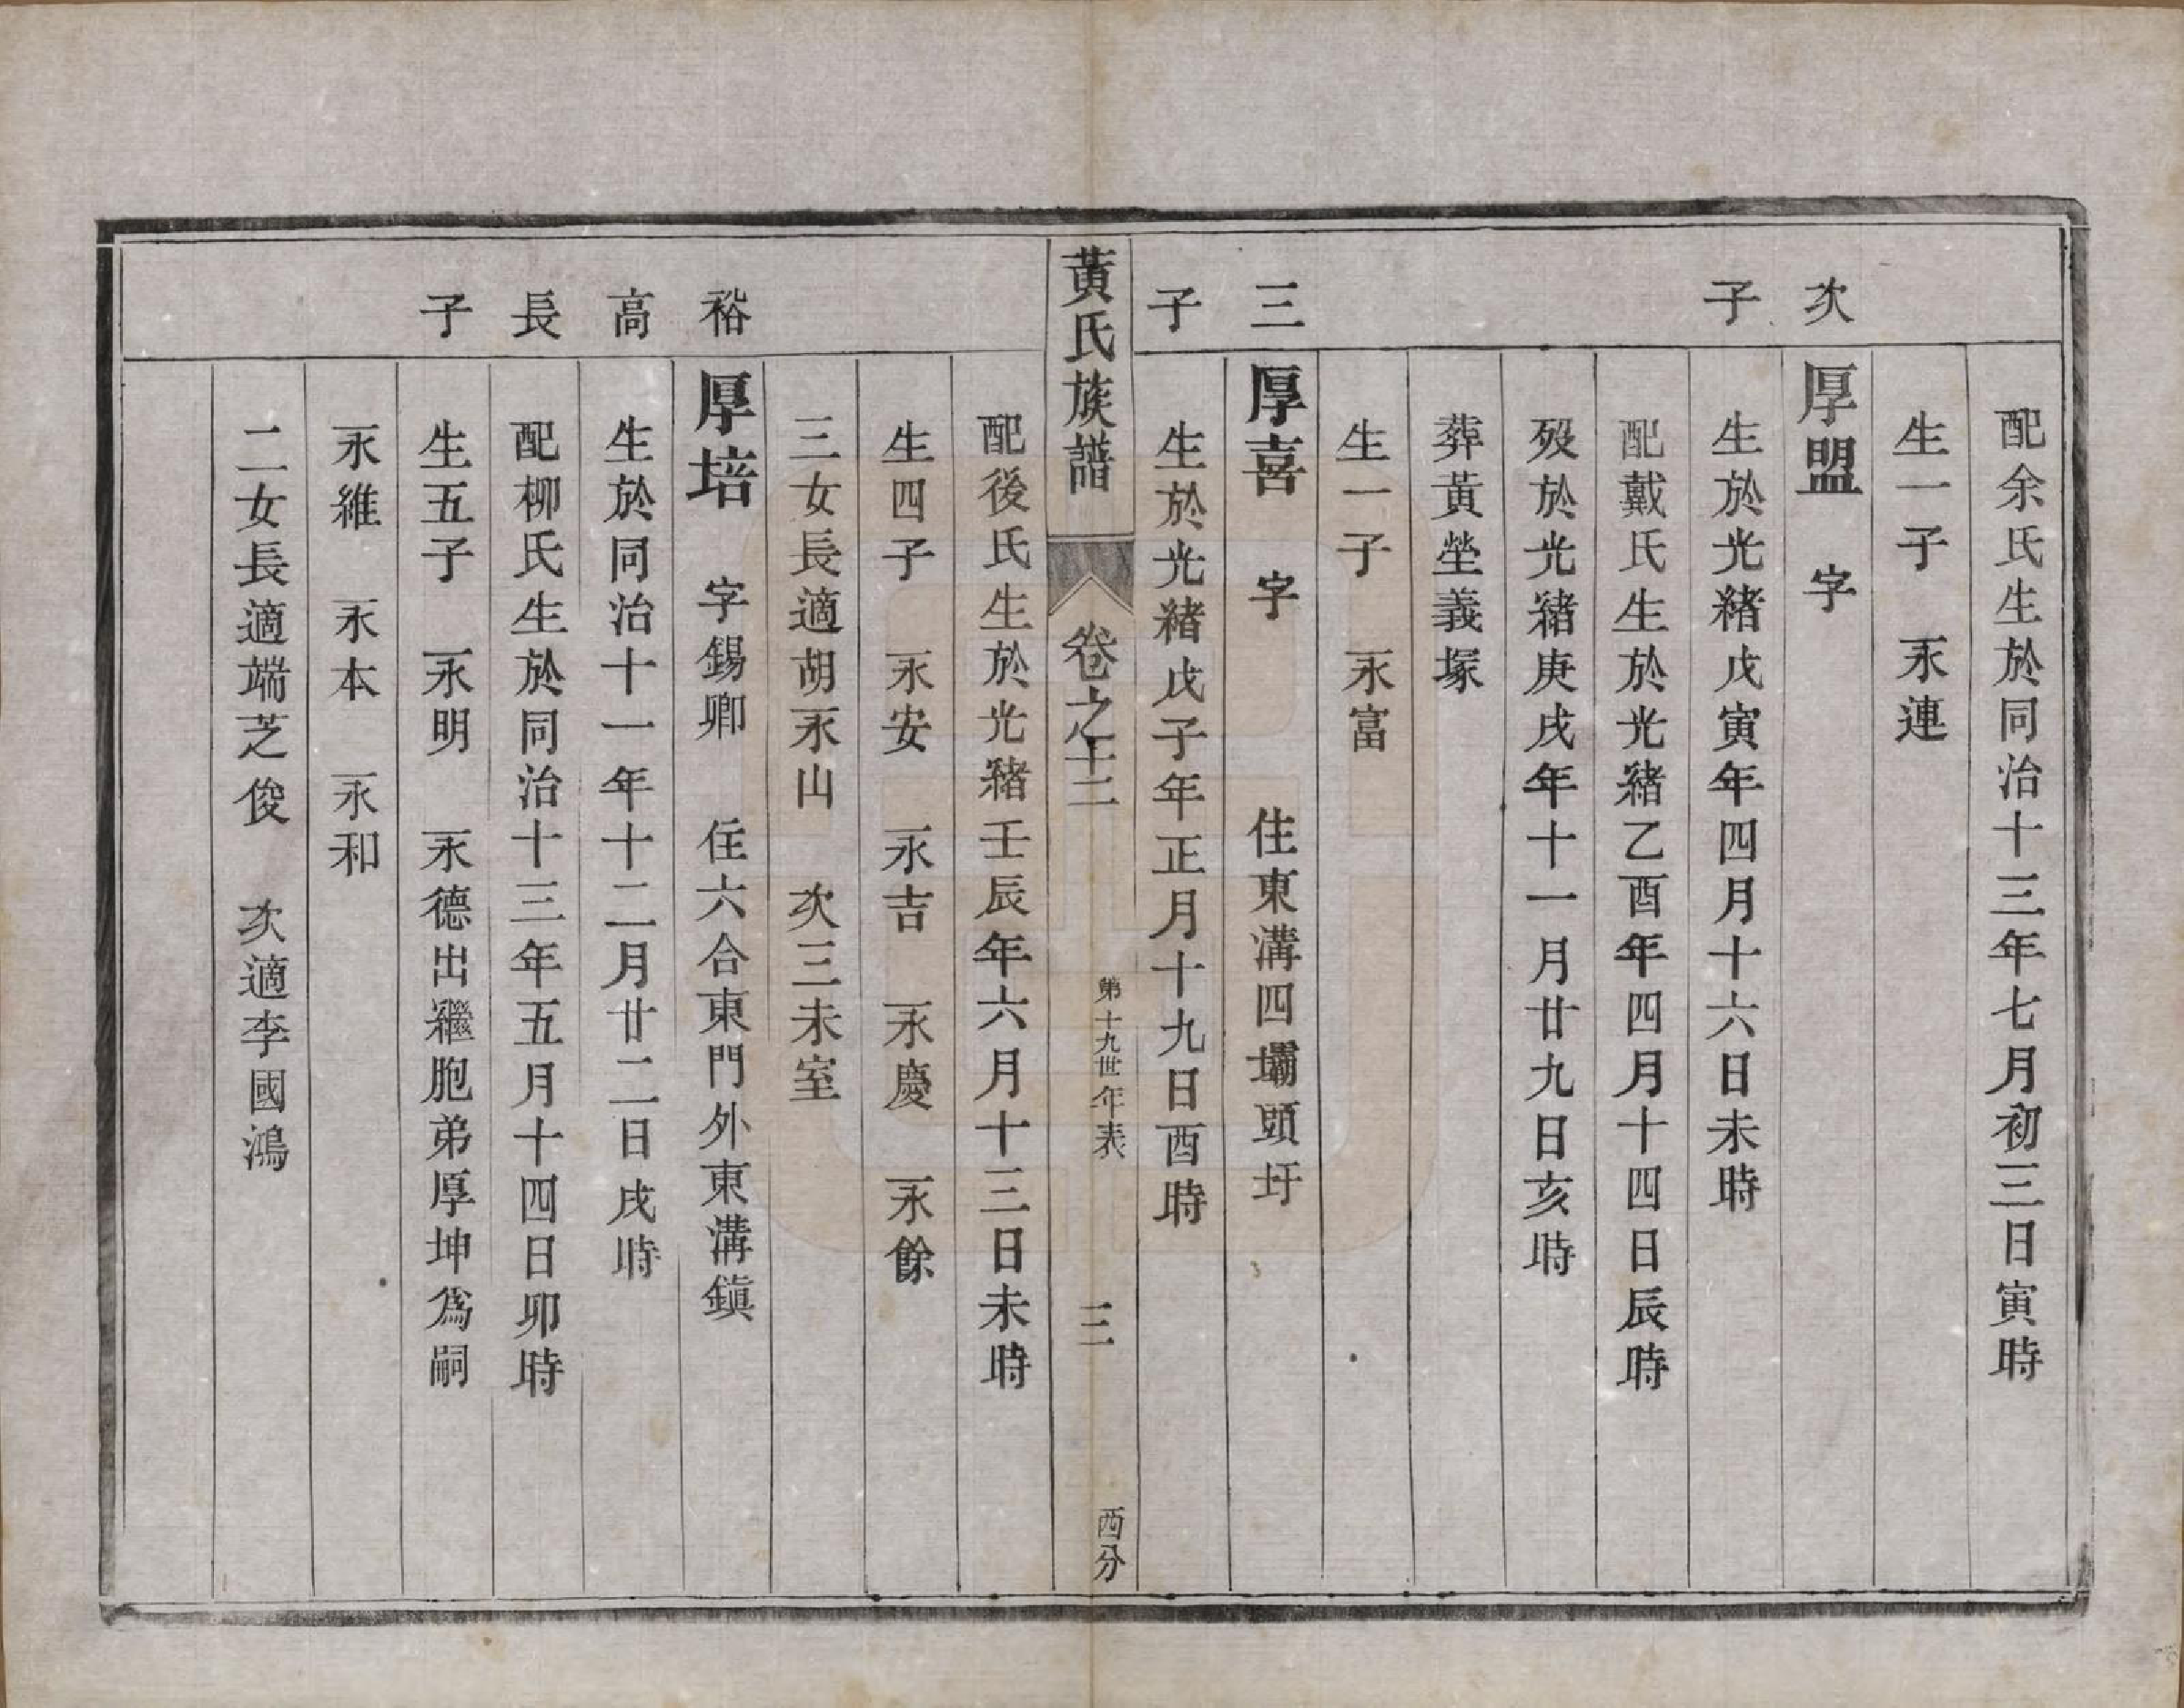 配余氏生於同治十三年七月初三日寅時
生一子　永連
次子
厚盟　字
生於光緒戊寅年四月十六日未時
配戴氏生於光緒乙酉年四月十四日辰時
歿於光緒庚戌年十一月廿九日亥時
葬黃塋義塚
生一子　永富
三子
厚喜　字　　住東溝四壩頭圩
生於光緒戊子年正月十九日酉時
黃氏族譜　卷之十二　第十九世年表　三　西分
配後氏生於光緒壬辰年六月十三日未時
生四子　永安　永吉　永慶　永餘
三女長適胡永山　次三未室
裕高長子
厚培　字錫卿　住六合東門外東溝鎭
生於同治十一年十二月廿二日戌時
配柳氏生於同治十三年五月十四日卯時
生五子　永明　永德出繼胞弟厚坤爲嗣
永維　永本　永和
二女長適端芝俊　次適李國鴻